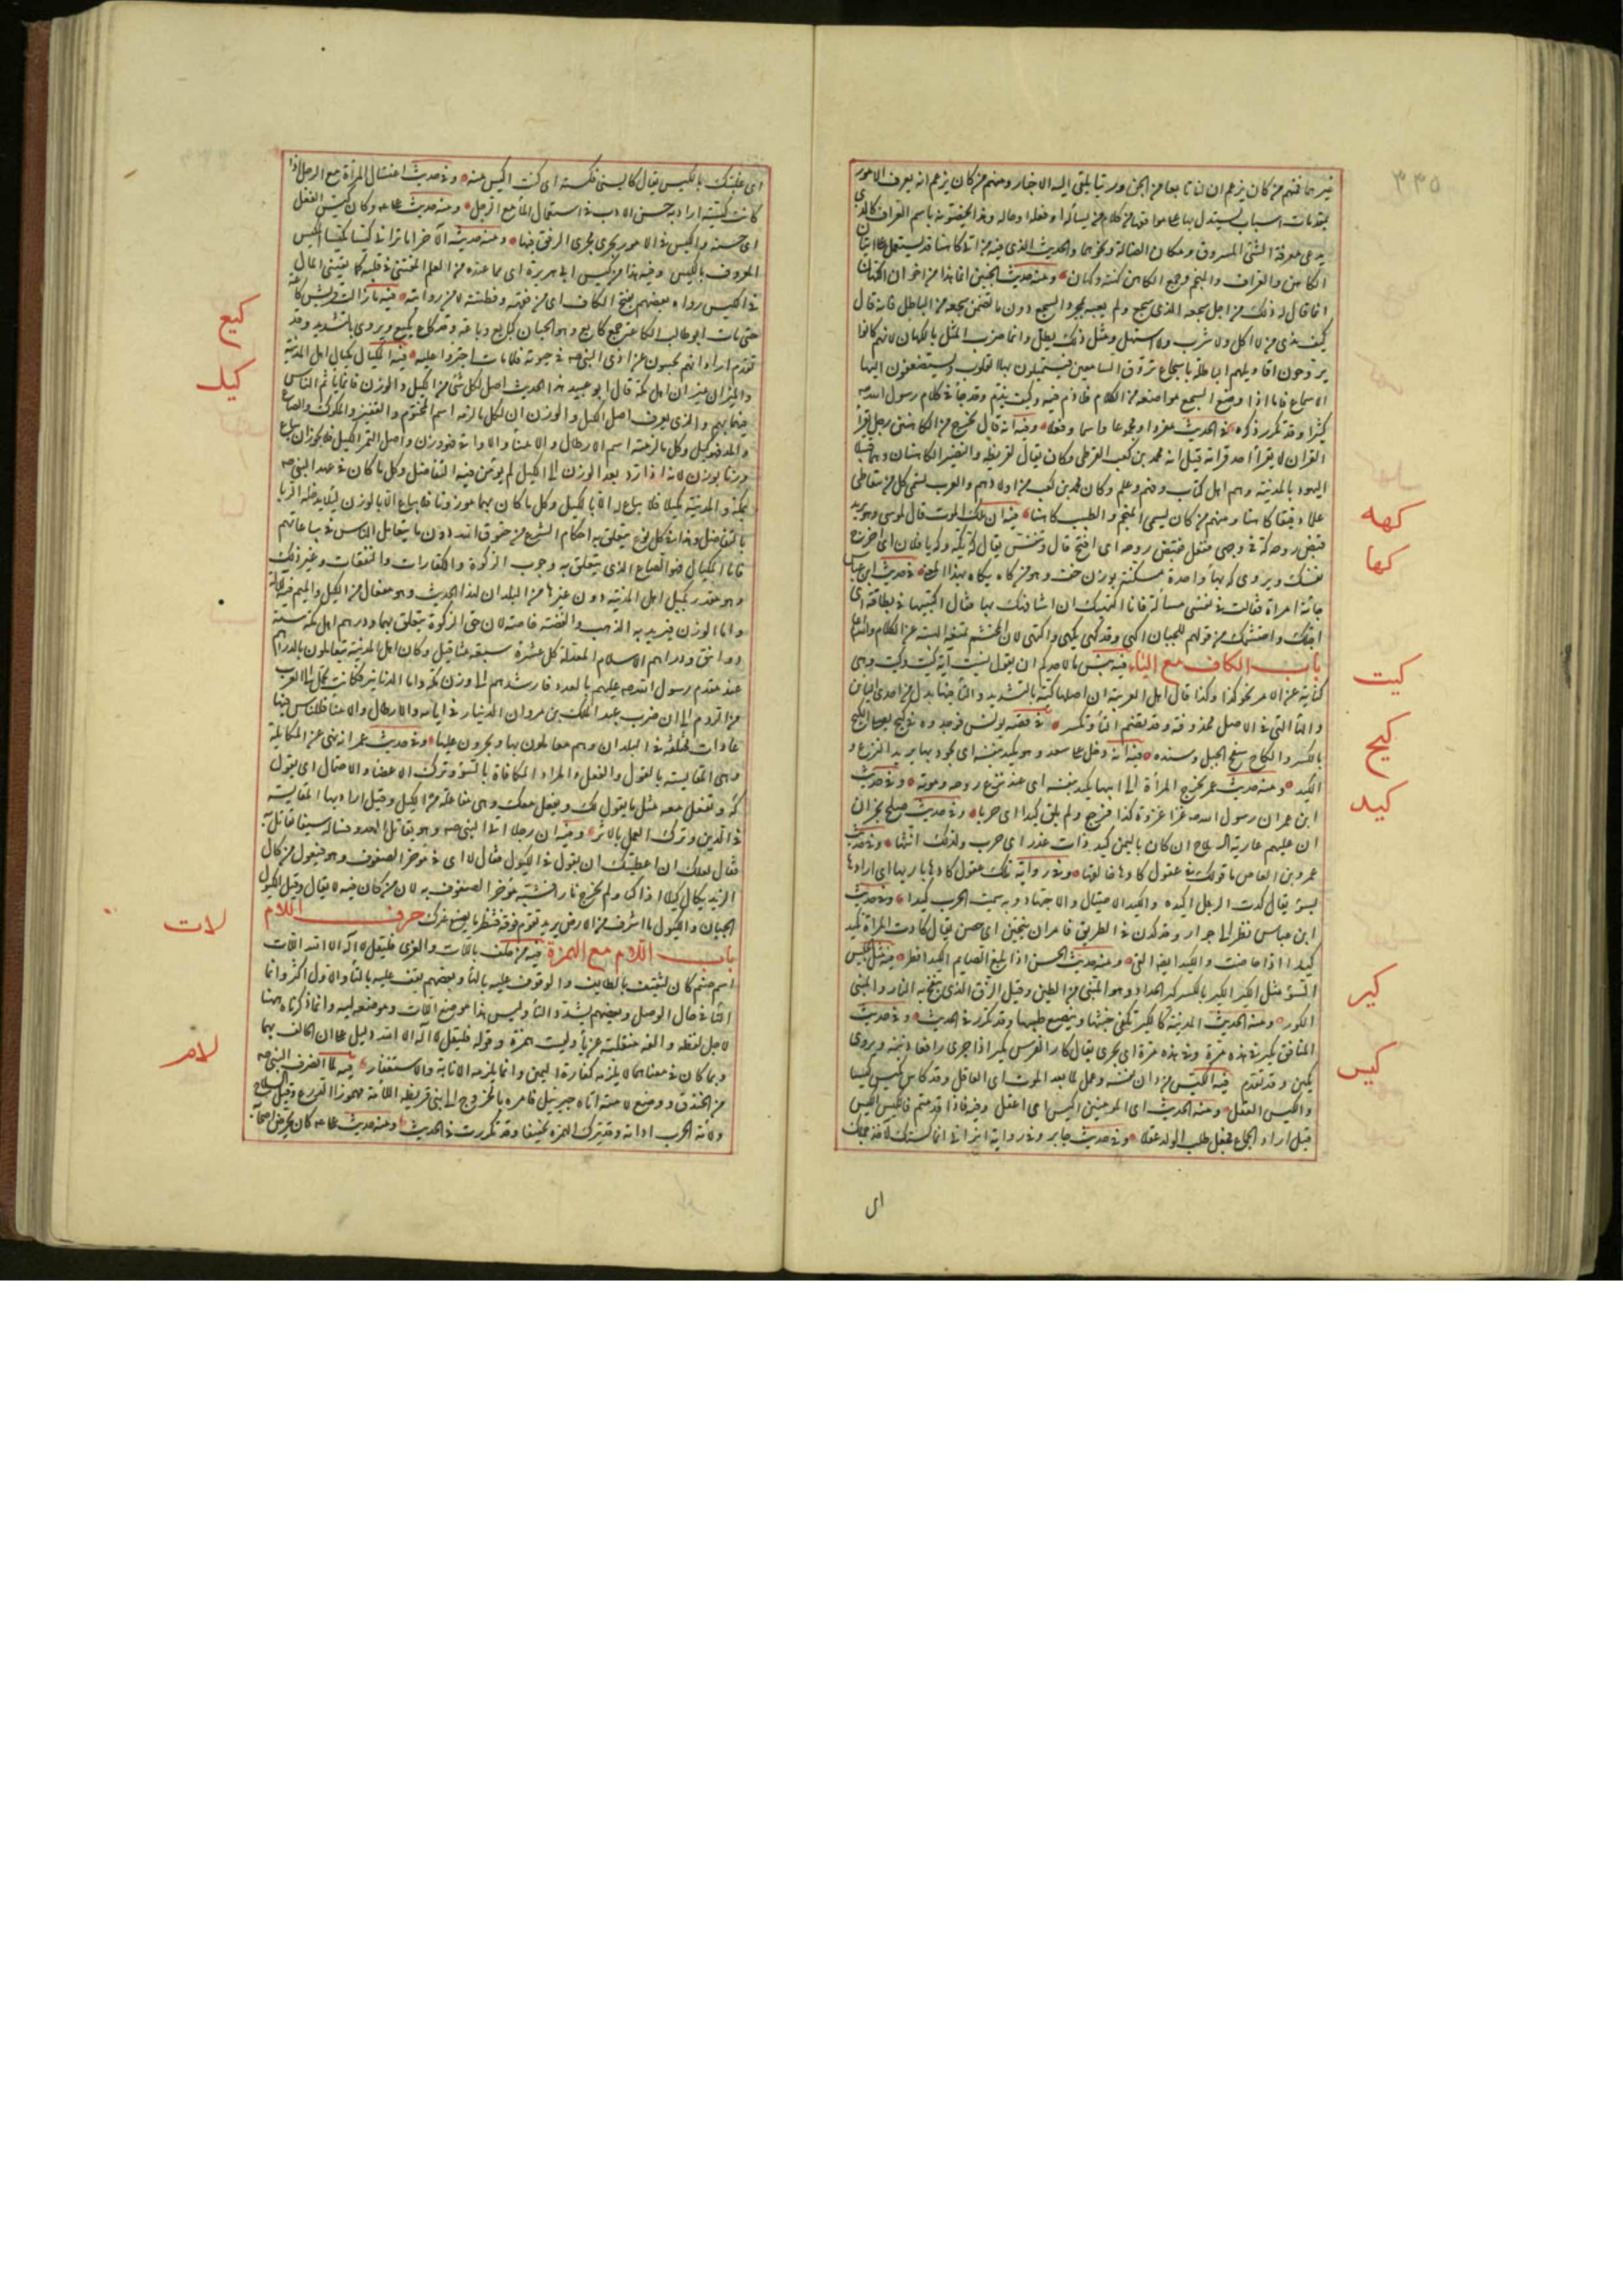 ٣٣٥
غيرهما فمنهم من كان يزعم ان له تابعا من الجن ورئيا يلقى اليه الاخبار ومنهم من كان يزعم انه يعرف الامور
بمقدمات اسباب يستدل بها على مواقعها من كلام من يسأله او فعله او حاله وهذا يخصونه باسم العراف كالذى
يدعى معرفة الشئ المسروق ومكان الضالة ونحوهما والحديث الذى فيه من اتى كاهنا قد يشتمل على اتيان
الكاهن والعراف والمنجم وجمع الكاهن كهنة وكهان ومنه حديث الجنين انما هذا من اخوان الكهان
انما قال له ذلك من اجل سجعه الذى سجع ولم يعبه بمجرد السجع دون ما تضمن سجعه من الباطل فانه قال
كيف ندى من لا اكل ولا شرب ولا استهل ومثل ذلك يطل وانما ضرب المثل بالكهان لانهم كانوا
يروجون اقاويلهم الباطلة باسجاع تروق السامعين فيستميلون بها القلوب ويستصغون اليها
الاسماع فاما اذا وضع السجع مواضعه من الكلام فلا ذم فيه وكيف يذم وقد جاء فى كلام رسول الله صه
كثيرا وقد تكرر ذكره فى الحديث مفردا ومجموعا واسما وفعلا وفيه انه قال يخرج من الكاهنين رجل يقرأ
القران لا يقرأ احد قراءته قيل انه محمد بن كعب القرظى وكان يقال لقريظة والنضير الكاهنان وهما قبيلا
اليهود بالمدينة وهم اهل كتاب وفهم وعلم وكان محمد بن كعب من اولادهم والعرب تسمى كل من يتعاطى
علما دقيقا كاهنا ومنهم من كان يسمى المنجم والطبيب كاهنا فيه ان ملك الموت قال لموسى وهو يريد
قبض روحه كه فى وجهى ففعل فقبض روحه اى افتح فاك وتنفس يقال كه يكه وكه يا فلان اى اخرج
نفسك ويروى كهه بهاء واحدة مسكنة بوزن خف وهو من كاه يكاه بهذا المعنى فى حديث ابن عباس
جاءته امراة فقالت فى نفسى مسألة فانا اكتهيك ان اشافهك بها فقال اكتبيها فى بطاقة اى
اجلك واحتشمك من قولهم للجبان اكهى وقد كهى يكهى واكتهى لان المحتشم تمنعه الهيبة عن الكلام
باب الكاف مع الياء فيه بئس ما لاحدكم ان يقول نسيت اية كيت وكيت وهى
كناية عن الامر نحو كذا وكذا قال اهل العربية ان اصلها كية بالتشديد والتاء فيها بدل من احدى اليائين
والتاء التى فى الاصل محذوفة وقد يضم التاء وتكسر فى قصة يونس فوجدوه فى كيح يصلى الكيح
بالكسر والكاح سفح الجبل وسنده فيه انه دخل على سعد وهو يكيد بنفسه اى يجود بها يريد النزع و
الكيد ومنه حديث عمر تخرج المرأة الى ابيها يكيد بنفسه اى عند نزع روحه وموته وفى حديث
ابن عمر ان رسول الله صه غزا غزوة كذا فرجع ولم يلق كيدا اى حربا وفى حديث صلح نجران
ان عليهم عارية السلاح ان كان باليمن كيد ذات غدر اى حرب ولذلك انثها وفى حديث
عمرو بن العاص ما قولك فى عقول كادها خالقها وفى رواية تلك عقول كادها باريها اى ارادها
بسوء يقال كدت الرجل اكيده والكيد الاحتيال والاجتهاد وبه سميت الحرب كيدا وفى حديث
ابن عباس نظر الى جوار وقد كدن فى الطريق فامر ان يتنحين اى حضن يقال كادت المرأة تكيد
كيدا اذا حاضت والكيد ايضا القئ ومنه حديث الحسن اذا بلغ الصايم الكيد افطر فيه مثل الجليس
السوء مثل الكير الكير بالكسر كير الحداد وهو المبنى من الطين وقيل الزق الذى ينفخ به النار والمبنى
الكور ومنه الحديث المدينة كالكير تنفى خبثها وينصع طيبها وقد تكرر فى الحديث وفى حديث
المنافق يكير فى هذه مرة وفى هذه مرة اى يجرى يقال كار الفرس يكير اذا جرى رافعا ذنبه ويروى
يكبن وقد تقدم فيه الكيس من دان نفسه وعمل لما بعد الموت اى العاقل وقد كاس يكيس كيسا
والكيس العقل ومنه الحديث اى المومنين اكيس اى اعقل وفيه فاذا قدمتم فالكيس الكيس
قيل اراد الجماع فجعل طلب الولد عقلا وفى حديث جابر وفى رواية اترانى انما كستك لآخذ جملك
اى
كهه
كها
كيت
كيح
كيد
كير
كيس
اى غلبتك بالكيس يقال كايسنى فكسته اى كنت اكيس منه وفى حديث اغتسال المرأة مع الرجل اذا
كانت كيسة اراد به حسن الادب فى استعمال الماء مع الرجل ومنه حديث على عه وكان كيس الفعل
اى حسنه والكيس فى الامور يجرى مجرى الرفق فيها ومنه حديثه الآخر اما ترانى كيسا مكيسا المكيس
المعروف بالكيس وفيه هذا من كيس ابى هريرة اى مما عنده من العلم المقتنى فى قلبه كما يقتنى المال
فى الكيس ورواه بعضهم بفتح الكاف اى من فقهه وفطنته لا من روايته فيه ما زالت قريش كاعة
حتى مات ابو طالب الكاعة جمع كايع وهو الجبان كبايع وباعة وقد كاع يكيع ويروى بالتشديد وقد
تقدم اراد انهم يجبنون عن اذى النبى صه فى حيوته فلما مات اجترؤا عليه فيه المكيال مكيال اهل المدينة
والميزان ميزان اهل مكة قال ابو عبيد هذا الحديث اصل لكل شئ من الكيل والوزن فانما ياتم الناس
فيهما بهم والذى يعرف اصل الكيل والوزن ان كل ما لزمه اسم المختوم والقفيز والمكوك والصاع
والمد فهو كيل وكل ما لزمته اسم الارطال والامناء والاواقى فهو وزن واصل التمر الكيل فلا يجوز ان يباع
وزنا بوزن لانه اذا رد بعد الوزن الى الكيل لم يومن فيه التفاضل وكل ما كان فى عهد النبى صه
بمكة والمدينة مكيلا فلا يباع الا بالكيل وكل ما كان بهما موزونا فلا يباع الا بالوزن لئلا يدخله الربا
بالتفاضل وهذا فى كل نوع يتعلق به احكام الشرع من حقوق الله دون ما يتعامل الناس فى بياعاتهم
فاما المكيال فهو الصاع الذى يتعلق به وجوب الزكوة والكفارات والنفقات وغير ذلك
وهو مقدر بكيل اهل المدينة دون غيرها من البلدان لهذا الحديث وهو مفعال من الكيل والميم فيه للآلة
واما الوزن فيريد به الذهب والفضة خاصة لان حق الزكوة يتعلق بهما ودرهم اهل مكة ستة
دوانق ودراهم الاسلام المعدلة كل عشرة سبعة مثاقيل وكان اهل المدينة يتعاملون بالدراهم
عند مقدم رسول الله صه عليهم بالعدد فارشدهم الى وزن مكة واما الدنانير فكانت تحمل الى العرب
من الروم الى ان ضرب عبد الملك بن مروان الدينار فى ايامه والارطال والامناء فللناس فيها
عادات مختلفة فى البلدان وهم معاملون بها ومجرون عليها وفى حديث عمر انه نهى عن المكايلة
وهى المقايسة بالقول والفعل والمراد المكافاة بالسوء وترك الاغضاء والاحتمال اى يقول
له وتفعل معه مثل ما يقول لك ويفعل معك وهى مفاعلة من الكيل وقيل اراد بها المقايسة
فى الدين وترك العمل بالاثر وفيه ان رجلا اتى النبى صه وهو يقاتل العدو فساله سيفا يقاتل به
فقال لعلك ان اعطيتك ان تقول فى الكيول فقال لا اى فى مؤخر الصفوف وهو فيعول من كال
الزند يكال كيلا اذا كبا ولم يخرج نارا فشبه مؤخر الصفوف به لان من كان فيه لا يقاتل وقيل الكيول
الجبان والكيول ما اشرف من الارض يريد تقوم فوقه فتنظر ما يصنع غيرك حرف اللام
باب اللام مع الهمزة فيه من حلف باللات والعزى فليقل لا اله الا الله اللات
اسم صنم كان لثقيف بالطايف والوقوف عليه بالهاء وبعضهم يقف عليه بالتاء والاول اكثر وانما
التاء فى حال الوصل وبعضهم يشدد التاء وليس هذا موضع اللات وموضعه ليه وانما ذكرناه ههنا
لاجل لفظه والفه منقلبة عن ياء وليست همزة وقوله فليقل لا اله الا الله دليل على ان الحالف بهما
وبما كان فى معناهما لا يلزمه كفارة اليمين وانما يلزمه الانابة والاستغفار فيه لما انصرف النبى صه
من الخندق ووضع لامته اتاه جبرئيل فامره بالخروج الى بنى قريظة اللأمة مهموزا الدرع وقيل السلاح
ولأمة الحرب اداته وقد يترك الهمزة تخفيفا وقد تكررت فى الحديث ومنه حديث على عه كان يحرض اصحابه
كيع
كيل
لات
لام